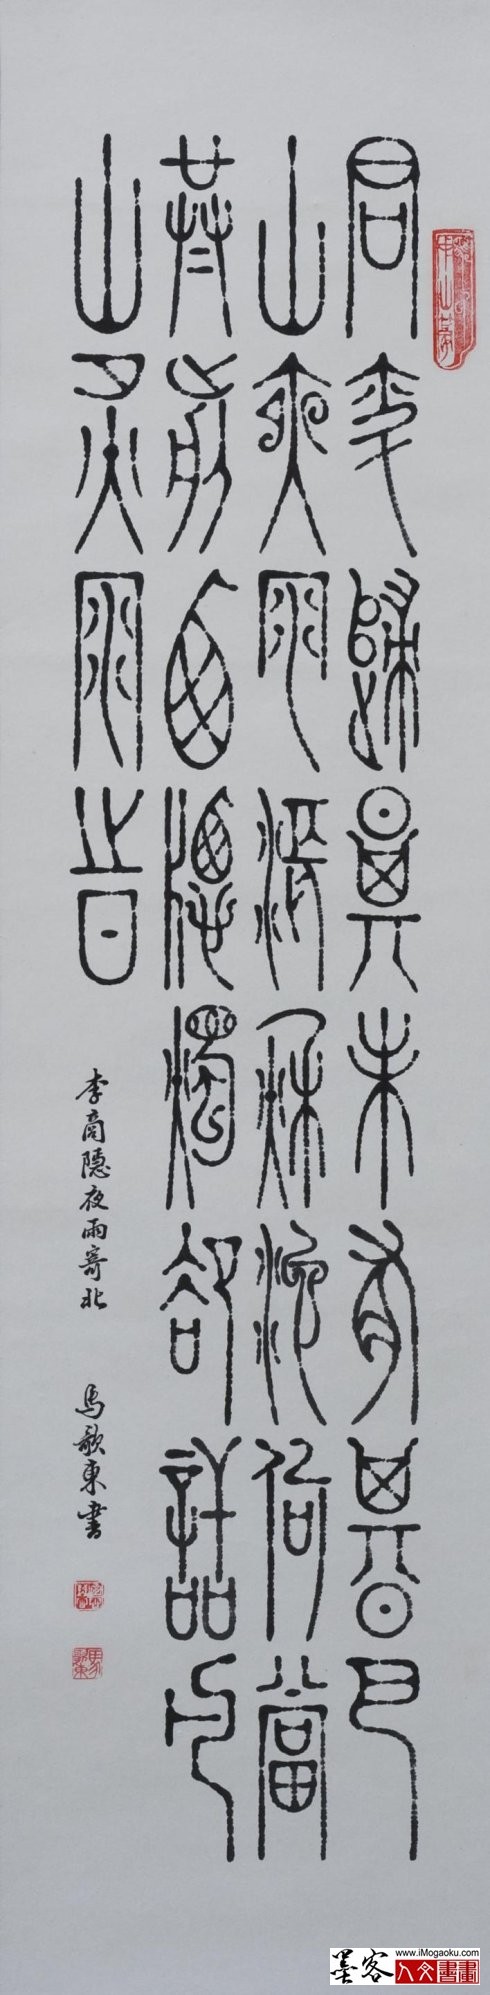 君問歸期未有期巴
山夜雨漲秋池何當
共剪西窗燭却話巴
山夜雨時
李商隱夜雨寄北 馬歌東書
馬歌東
墨客 www.iMogaoku.com
人文書畫